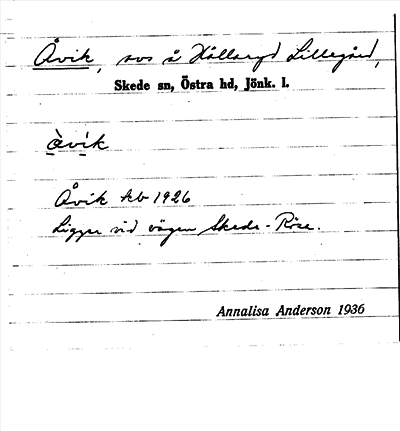 Åvik, avs å Hållaryd Lillegård,
Skede sn, Östra hd, Jönk. l.
Åvik kb 1926
Ligger vid vägen Skede-
Annalisa Anderson 1936